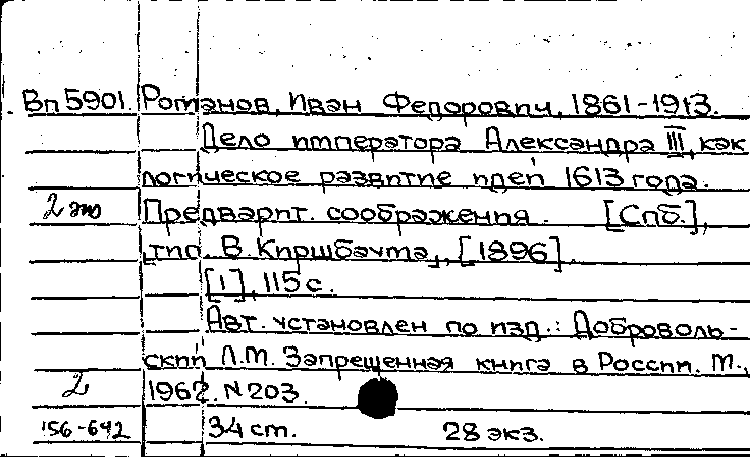 Вп 5901. Романов, Иван Федорович, 1861-1913.
Дело императора Александра III, как
логическое развитие идей 1613 года.
2 экз Предварит. соображения. [Спб.],
тип. В. Киршбаума, [1896].
[1], 115 с.
Авт. установлен по изд.: Доброволь-
ский Л.М. Запрещенная книга в России. М.,
2 1962. N 203.
156-642 34 ст. 28 экз.